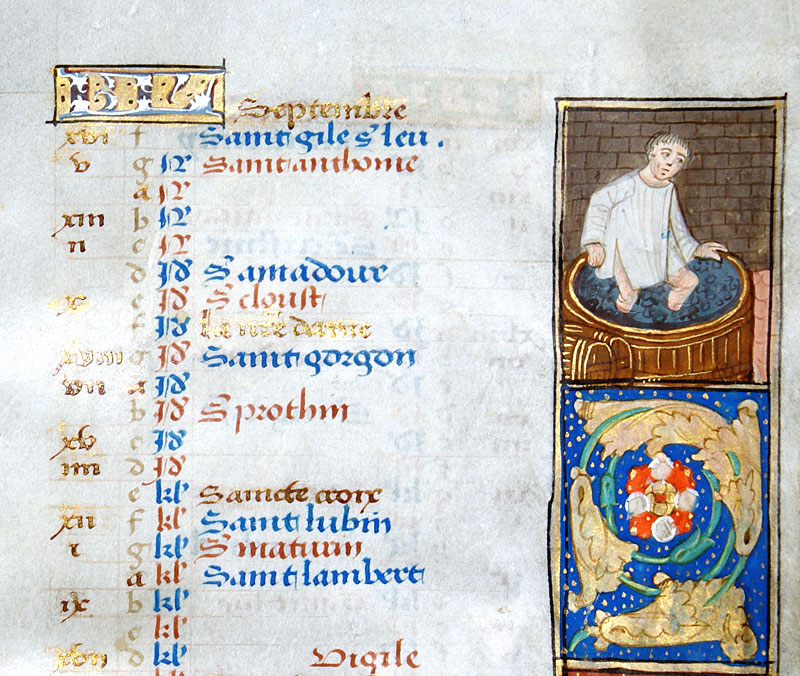 KL Septembre
xvi f Saint gile s' leu .
v g N Saint anthoine
a N
xiii b N
ii c N
d Id S' amadour
x e Id S' cloust
f Id la n're dame
xviii g Id Saint gorgon
vii a Id
b Id S' prothin
xv c Id
iiii d Id
e kl Saincte croix
xii f kl Saint lubin
i g kl S' maturin
a kl Saint lambert
ix b kl
c kl
xvii d kl Vigile